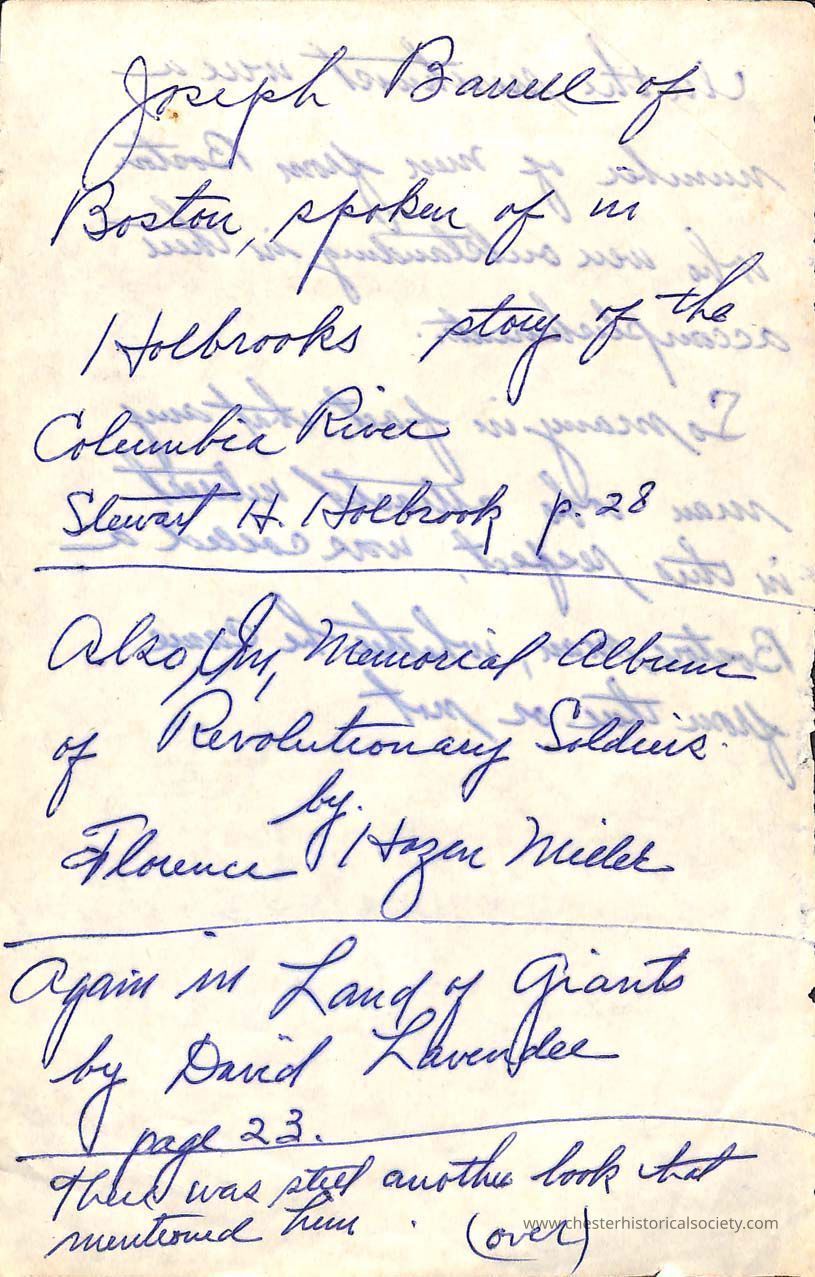 Joseph Barrell of
Boston, spoken of in
Holbrooks story of the
Columbia River
Stewart H. Holbrook p. 28
Also, In, Memorial Album
of Revolutionary Soldiers.
by.
Florence Hazen Miller
Again in Land of Giants
by David Lavender
page 23.
There was still another book that
mentioned him . (over)
www.chesterhistoricalsociety.com